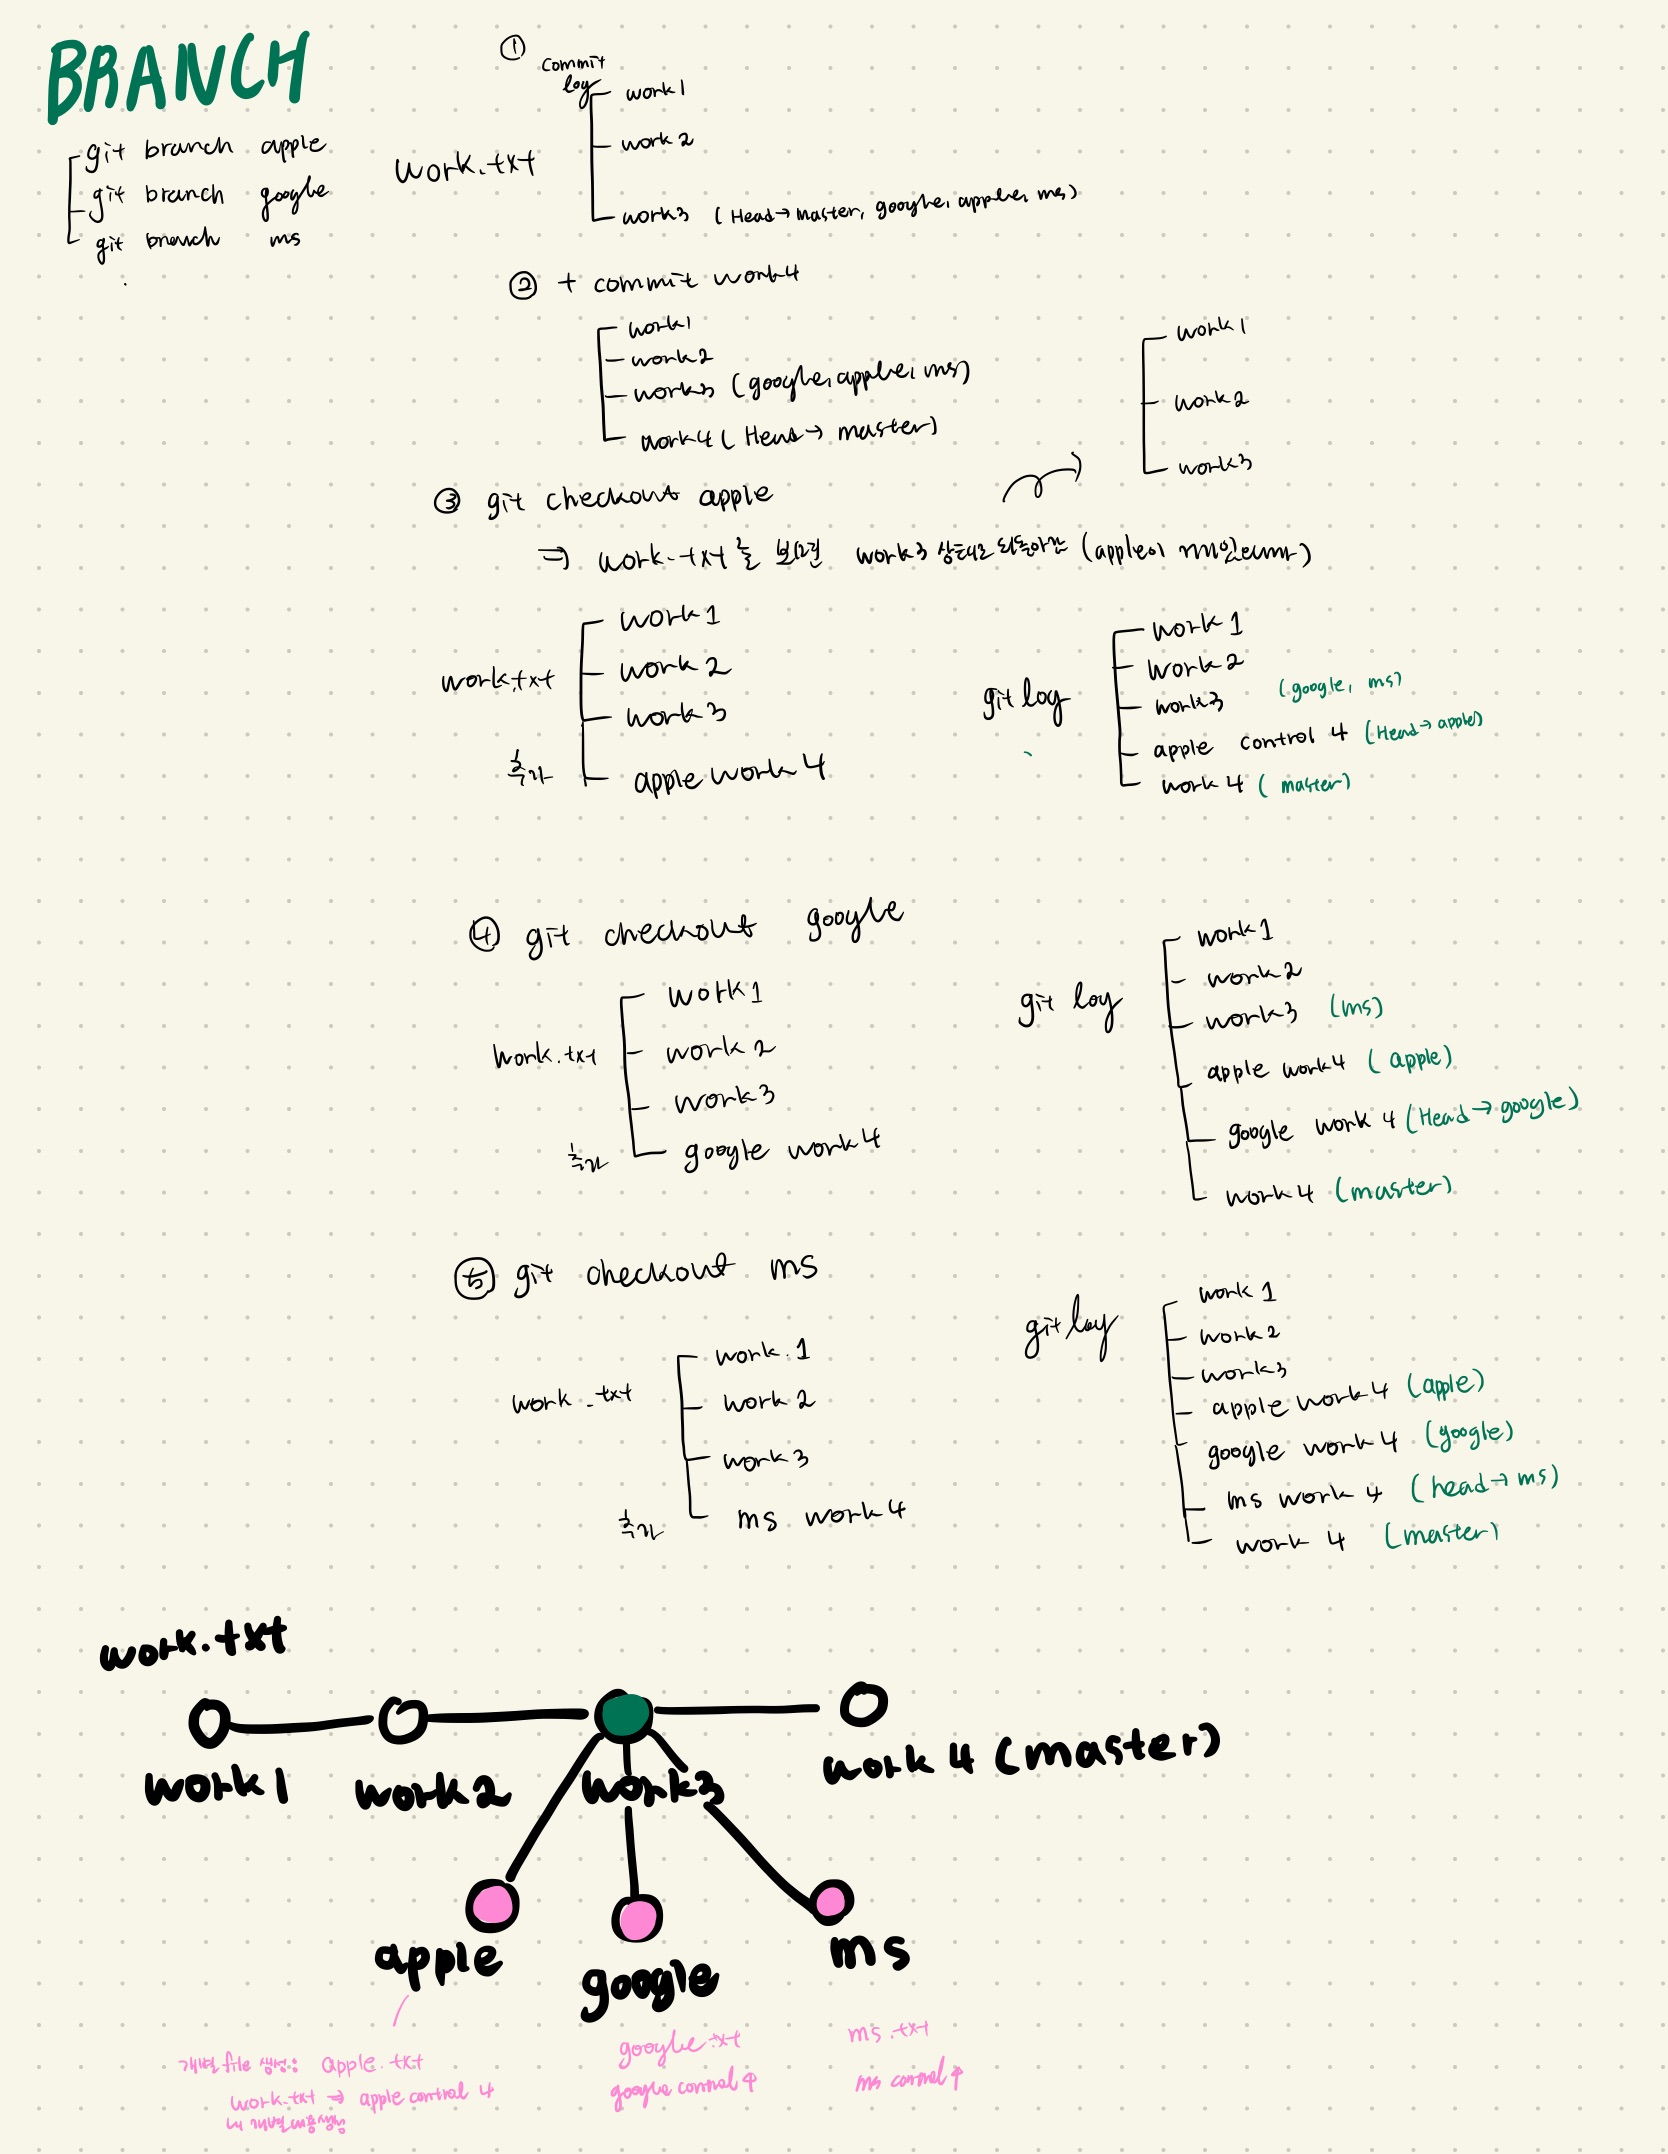 BRANCH
git branch apple
git branch google
git branch ms
①
commit
log
work.txt
work1
work2
work3 (Head→master, google, apple, ms)
② + commit work4
work1
work2
work3 (google, apple, ms)
work4 (Head→ master)
work1
work2
work3
③ git checkout apple
⇒ work.txt를 보면 work3 상태로 되돌아감 (apple이
work.txt
work1
work2
work3
추가
apple work 4
git log
work 1
work 2
work3 (google, ms)
apple control 4 (Head→apple)
work 4 (master)
④ git checkout google
work.txt
work1
work2
work3
추가
google work4
git log
work1
work2
work3 (ms)
apple work4 (apple)
google work 4 (Head→google)
work4 (master)
⑤ git checkout ms
work.txt
work.1
work 2
work3
추가
ms work4
git log
work 1
work2
work3
apple work4 (apple)
google work4 (google)
ms work 4 (head→ms)
work 4 (master)
work.txt
work1
work2
work3
work 4 (master)
apple
google
ms
개별 file 생성: apple.txt
work.txt ⇒ apple control 4
↳ 개별내용생성
google.txt
google control 4
ms.txt
ms control 4